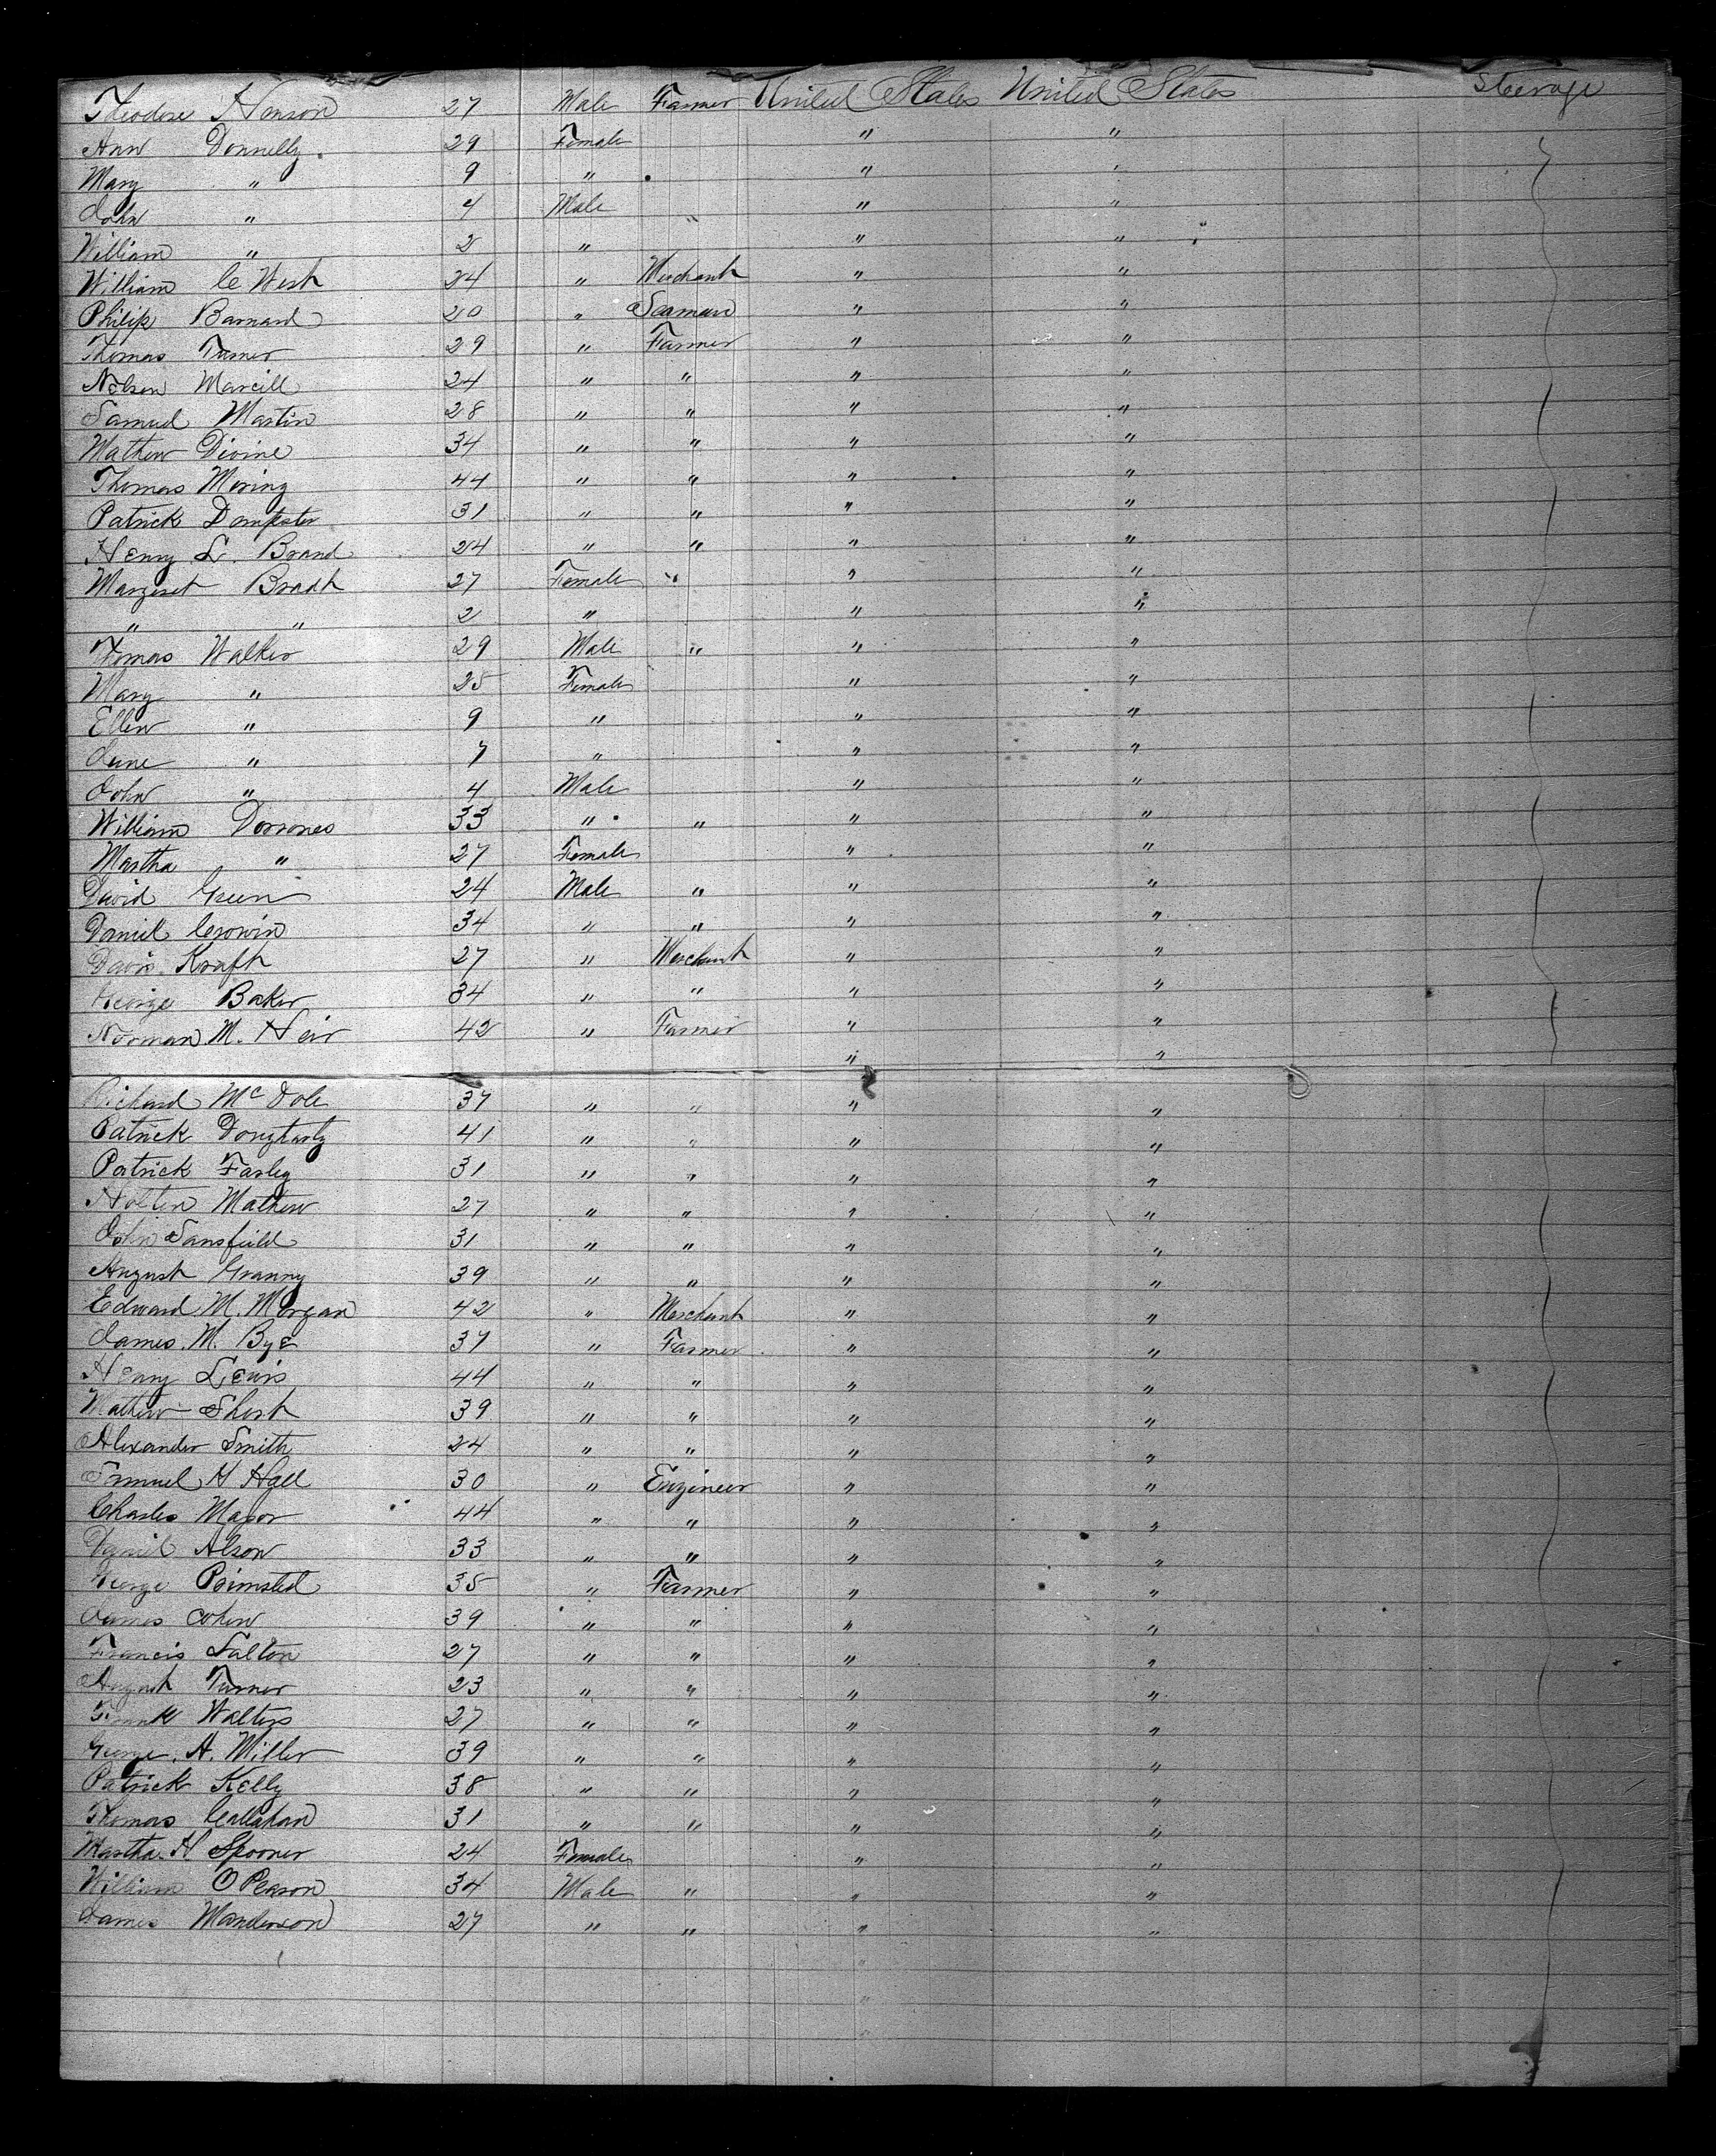 Theodore Henson 27 Male Farmer United States United States Steerage
Ann Donnelly 29 Female " "
Mary " 9 " " "
John " 4 Male " " "
William " 2 " " "
William C West 24 " Merchant " "
Philip Barnard 20 " Seaman " "
Thomas Turner 29 " Farmer " "
Nelson Marcill 24 " " " "
Samuel Martin 28 " " " "
Mathew Divine 34 " " " "
Thomas Moring 44 " " " "
Patrick Dempster 31 " " " "
Henry L. Brand 24 " " " "
Margeret Bradt 27 Female " " "
" " 2 " " "
Thomas Walker 29 Male " " "
Mary " 25 Female " "
Ellen " 9 " " "
Jane " 7 " " "
John " 4 Male " "
William Dorrones 33 " " " "
Martha " 27 Female " "
David Green 24 Male " " "
Daniel Crowin 34 " " " "
Davis Kraft 27 " Merchant " "
George Baker 34 " " " "
Norman M. Heir 42 " Farmer " "
" "
Richard McDole 37 " " " "
Patrick 41 " " " "
Patrick Farley 31 " " " "
Holten Mathew 27 " " " "
John Sansfield 31 " " " "
August Granny 39 " " " "
Edward M. Morgan 42 " Merchant " "
James M. Bye 37 " Farmer " "
Henry Lewis 44 " " " "
Mathew Short 39 " " " "
Alexander Smith 24 " " " "
Samuel H Hall 30 " Engineer " "
Charles Major 44 " " " "
Daniel Alson 33 " " " "
George Brimsted 35 " Farmer " "
James Cohen 39 " " " "
Francis Salton 27 " " " "
August Turner 23 " " " "
Frank Walters 27 " " " "
George A. Miller 39 " " " "
Patrick Kelly 38 " " " "
Thomas Callahan 31 " " " "
Martha H Spooner 24 Female " "
William O Pearson 34 Male " " "
James Manderson 27 " " " "
"
"
"